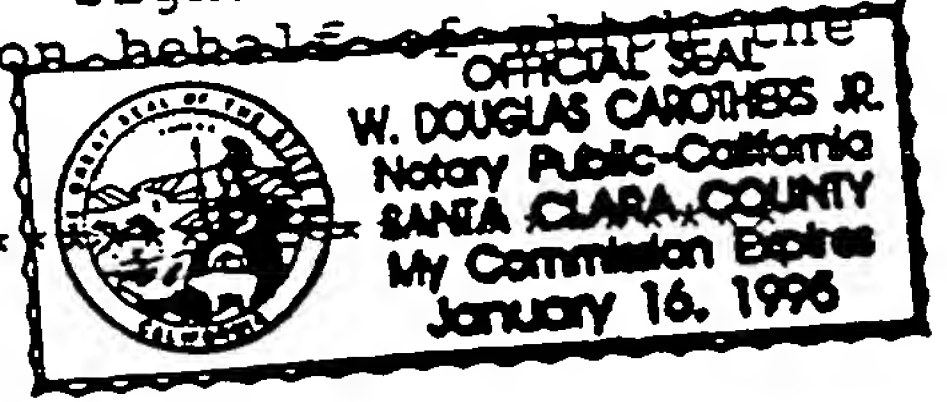 on behalf of which the
OFFICIAL SEAL
W. DOUGLAS CAROTHERS JR.
Notary Public-California
SANTA CLARA COUNTY
My Commission Expires
January 16, 1995